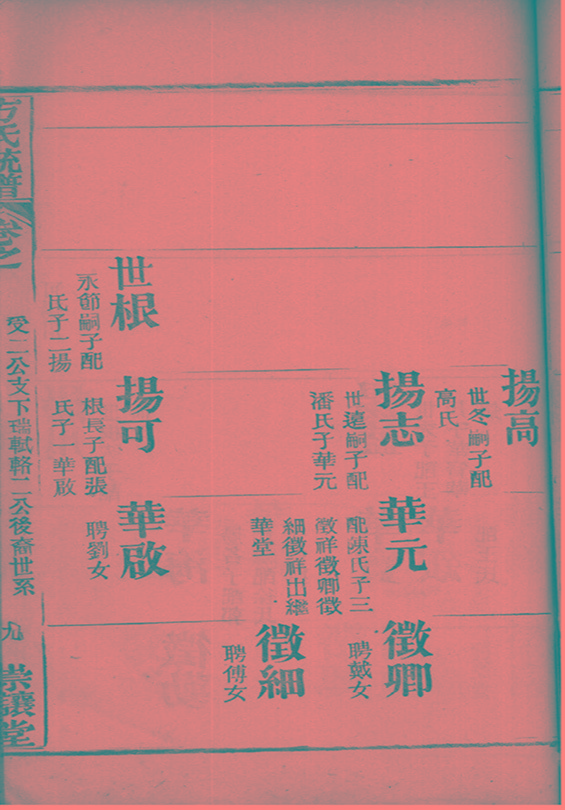 揚高
世冬嗣子配
高氏
揚志
世遠嗣子配
潘氏子華元
華元
配陳氏子三
徵祥徵卿徵
細徵祥出繼
華堂
徵卿
聘戴女
徵細
聘傅女
世根
永節嗣子配
氏子二揚
揚可
根長子配張
氏子一華啟
華啟
聘劉女
方氏統譜
卷之
受二公支下瑞軾輅二公後裔世系
九
崇讓堂